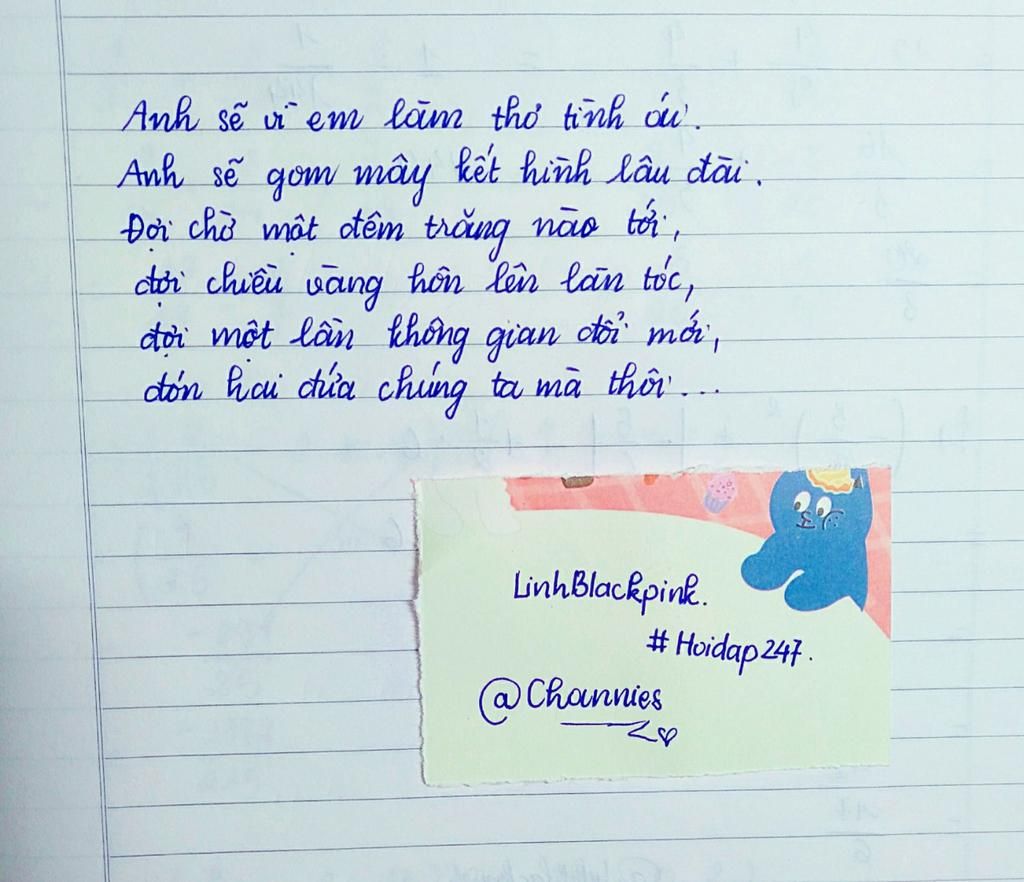 Anh sẽ vì em làm thơ tình ái.
Anh sẽ gom mây kết hình lâu đài.
Đợi chờ một đêm trăng nào tới,
đợi chiều vàng hôn lên làn tóc,
đợi một lần không gian đổi mới,
đón hai đứa chúng ta mà thôi...
LinhBlackpink.
#Hoidap247.
@Channies